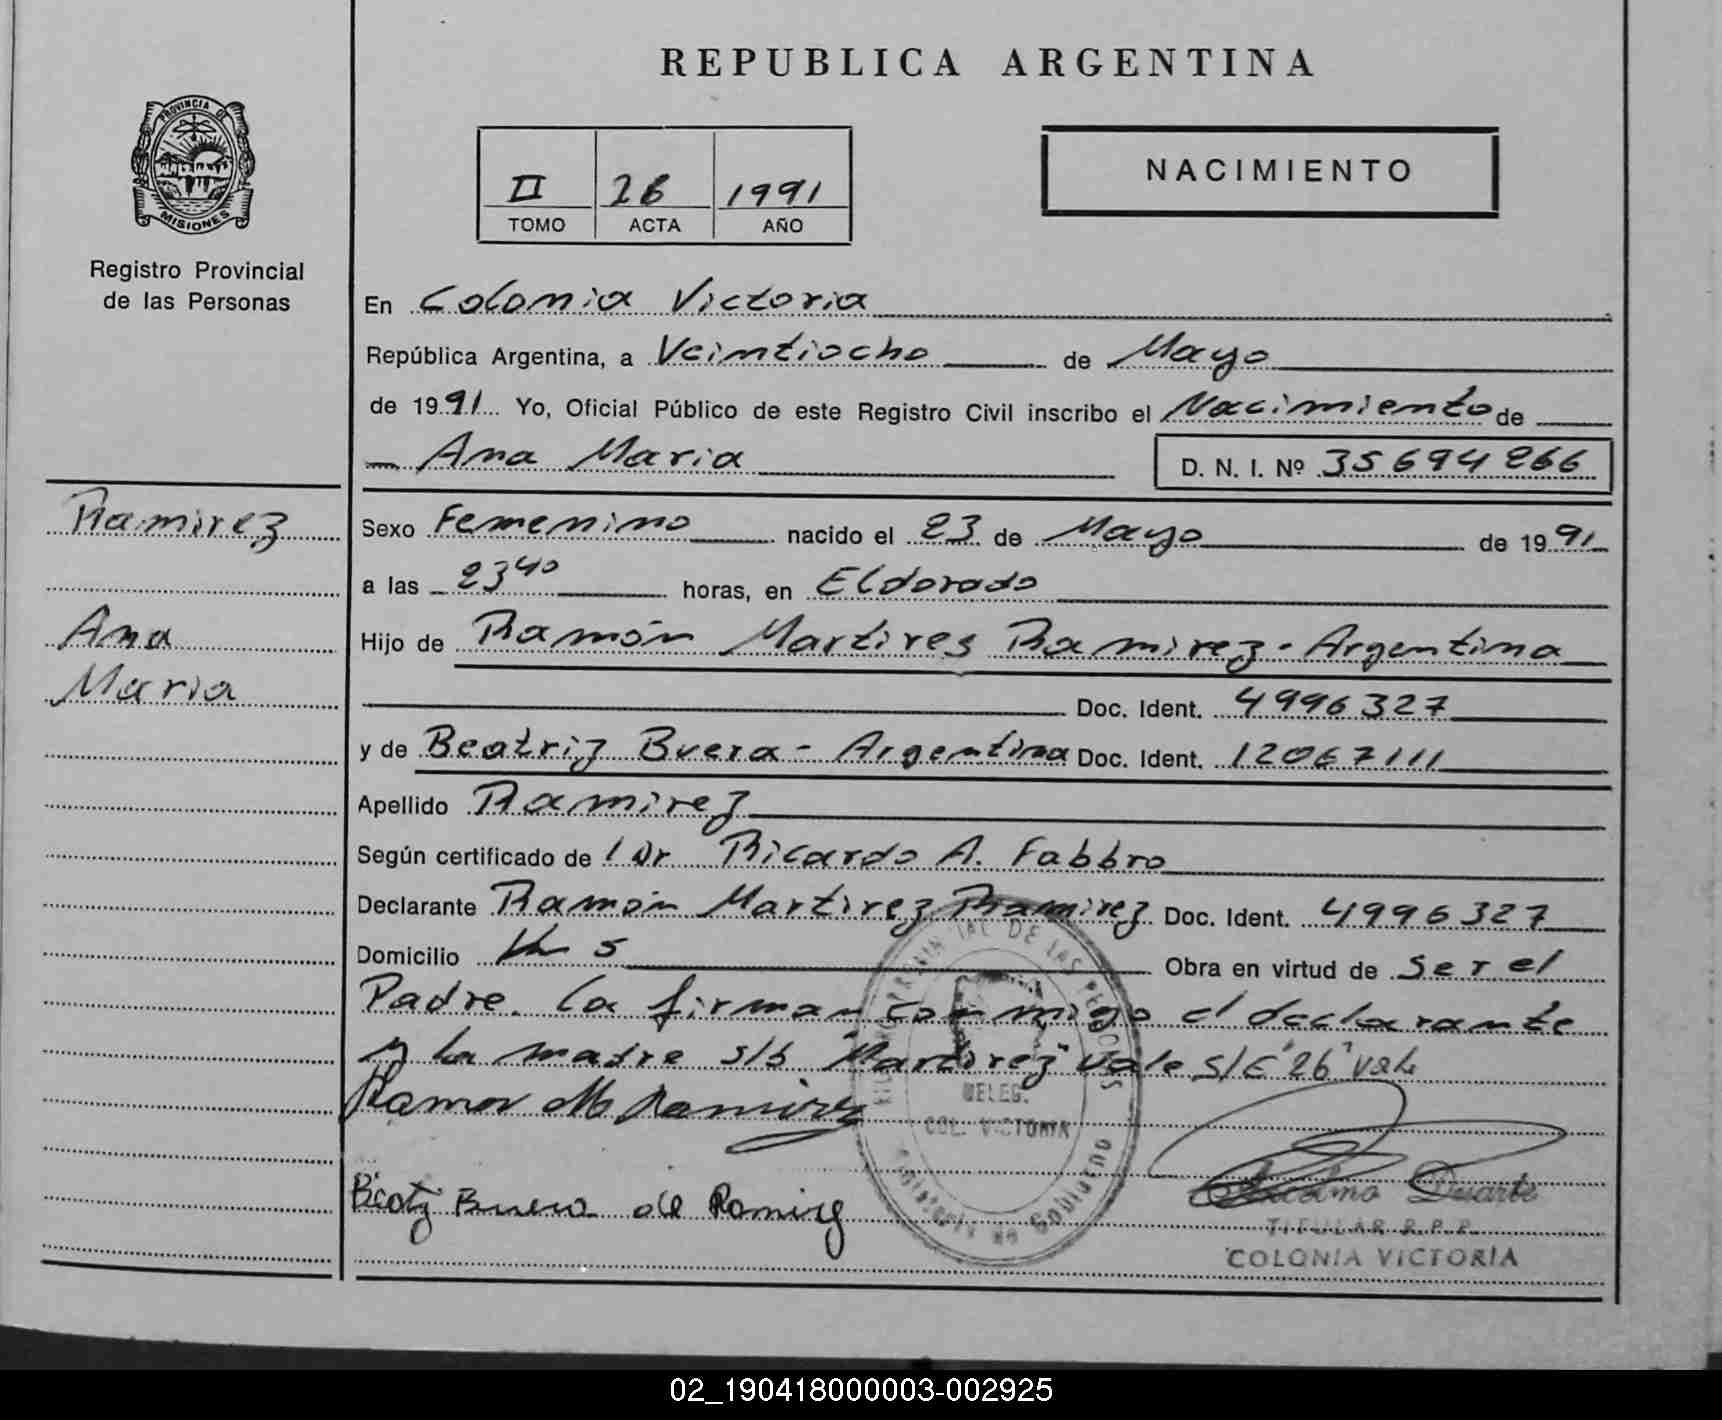 REPUBLICA ARGENTINA
PROVINCIA DE
MISIONES
Registro Provincial
de las Personas
II 26 1991
TOMO ACTA AÑO
NACIMIENTO
En Colonia Victoria
República Argentina, a Veintiocho de Mayo
de 1991 Yo, Oficial Público de este Registro Civil inscribo el Nacimiento de
Ana Maria D. N. I. Nº 35694266
Ramirez
Ana
Maria
Sexo Femenino nacido el 23 de Mayo de 1991
a las 23 40 horas, en Eldorado
Hijo de Ramón Martires Ramirez - Argentina
Doc. Ident. 4996327
y de Beatriz Buera - Argentina Doc. Ident. 12067111
Apellido Ramirez
Según certificado de 1 Dr Ricardo A. Fabbro
Declarante Ramón Martirez Ramirez Doc. Ident. 4996327
Domicilio Km 5 Obra en virtud de Ser el
Padre. La firman conmigo el declarante
y la madre s/b "Martirez" vale s/E "26" vale
Ramon M Ramirez
Beatriz Buera de Ramirez
DE LAS PERSONAS
DELEG.
COL. VICTORIA
Ministerio de Gobierno
Duarte
TITULAR R.P.P.
COLONIA VICTORIA
02_190418000003-002925